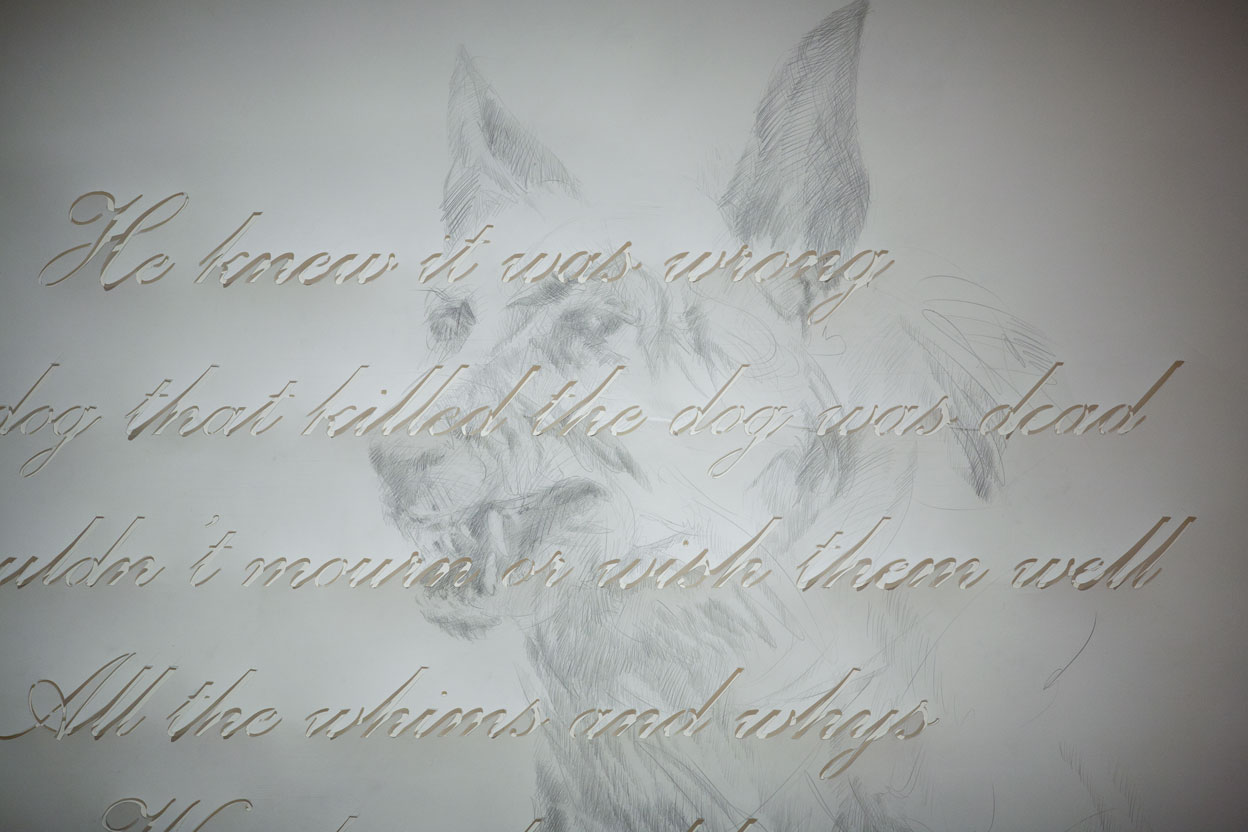 He knew it was wrong
dog that killed the dog was dead
uldn't mourn or wish them well
All the whims and whys